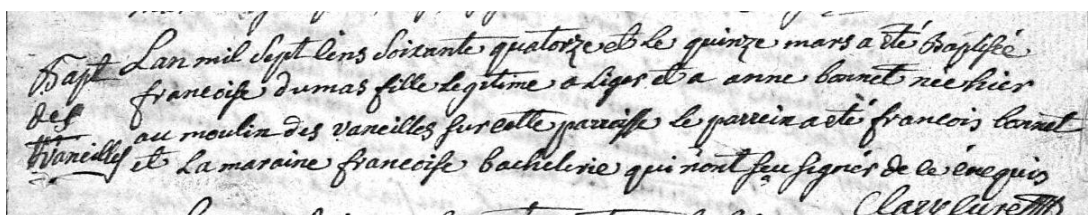 Bapt Lan mil sept cens soixante quatorze et le quinze mars a été Baptisée
des francoise dumas fille legitime a liger et a anne bonnet née hier
vaneilles au moulin des vaneilles sur cette parroisse le parrein a été francois bonnet
et la maraine francoise bachelerie qui nont sçu signer de ce enequis
Clary curé